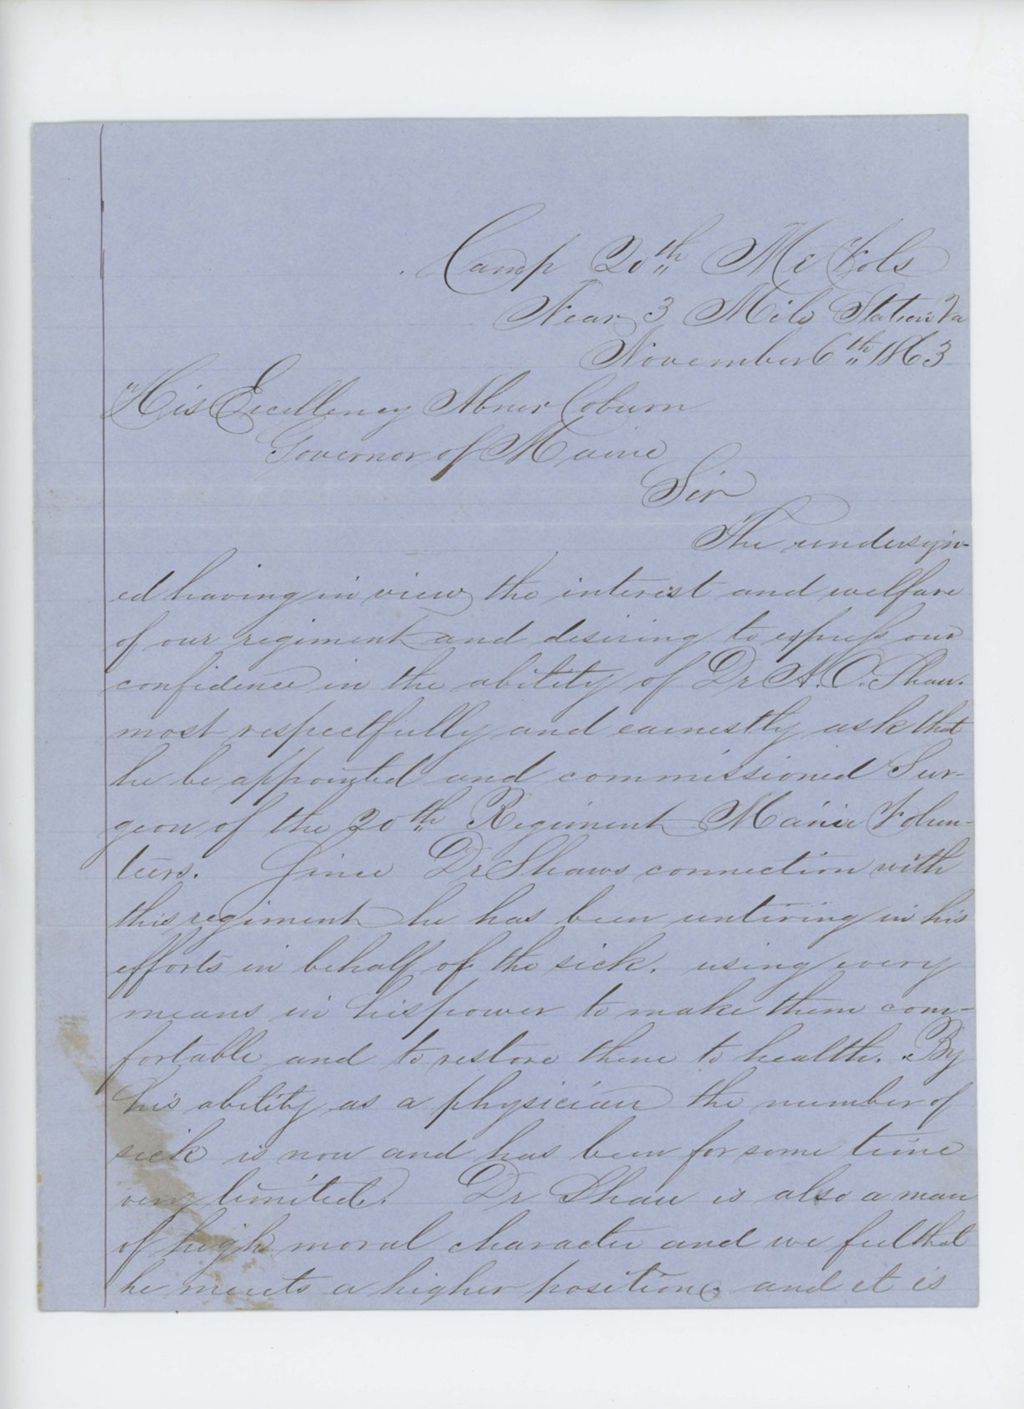 Camp 20th Me Vols
Near 3 Mile Station Va
November 6th 1863
His Excellency Abner Coburn
Governor of Maine
Sir
The undersign-
ed having in view the interest and welfare
of our regiment and desiring to express our
confidence in the ability of Dr A. O. Shaw.
most respectfully and earnestly ask that
he be appointed and commissioned Sur-
geon of the 20th Regiment Maine Volun-
teers. Since Dr Shaws connection with
this regiment he has been untiring in his
efforts in behalf of the sick. using every
means in his power to make them com-
fortable and to restore them to health. By
his ability as a physician the number of
sick is now and has been for some time
very limited. Dr Shaw is also a man
of high moral character and we feel that
he merits a higher position. and it is